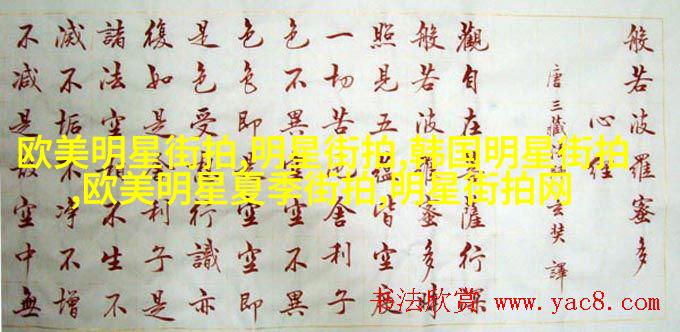 般若波羅蜜多
心經
唐三藏法師玄奘譯
觀自在菩薩行深
般若波羅蜜多時
照見五蘊皆空度
一切苦厄舍利子
色不異空空不異
色色即是空空即
是色受想行識亦
復如是舍利子是
諸法空相不生不
滅不垢不淨不增
不減是故空中無
欧美明星街拍,明星街拍,韩国明星街拍
,欧美明星夏季街拍,明星街拍网
书法欣赏 www.yac8.com